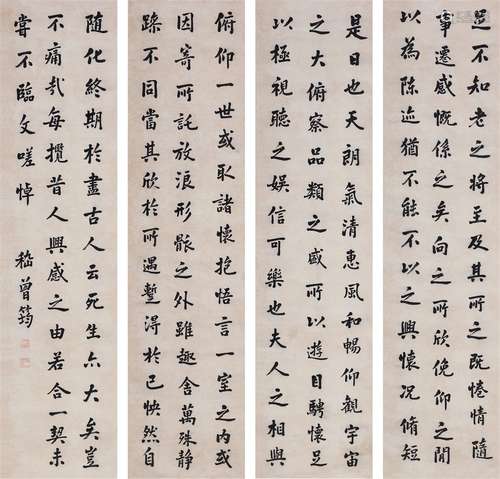 足不知老之將至及其所之既惓情隨
事遷感慨係之矣向之所欣俛仰之閒
以為陳迹猶不能不以之興懷況脩短
是日也天朗氣清惠風和暢仰觀宇宙
之大俯察品類之盛所以遊目騁懷足
以極視聽之娛信可樂也夫人之相與
俯仰一世或取諸懷抱悟言一室之內或
因寄所託放浪形骸之外雖趣舍萬殊靜
躁不同當其欣於所遇蹔得於己怏然自
隨化終期於盡古人云死生亦大矣豈
不痛哉每攬昔人興感之由若合一契未
嘗不臨文嗟悼
嵇曾筠